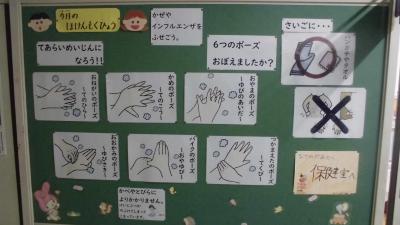 今月の
ほけんもくひょう
かぜや
インフルエンザを
ふせごう。
てあらいめいじんに
なろう!!
6つのポーズ
おぼえましたか?
さいごに・・・
おねがいのポーズ
~てのひら~
かめのポーズ
~てのこう~
おやまのポーズ
~ゆびのあいだ~
ハンカチやタオル
おおかみのポーズ
~ゆびさき~
バイクのポーズ
~おやゆび~
つかまえたのポーズ
~てくび~
かべやとびらに
よりかかりません。
保健室へ